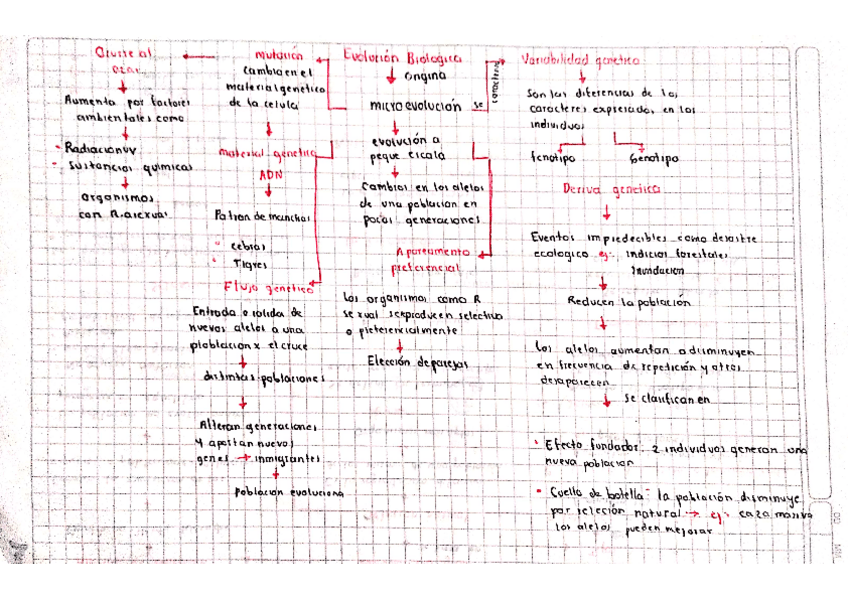 Evolución Biologica
origina
microevolución se
caracteriza
evolución a
peque escala
Cambios en los alelos
de una poblacion en
pocas generaciones
Apareamento
preferencial
Los organismos como R
sexual se reproducen selectiva
o preferencialmente
Elección de parejas
mutación
Cambio en el
material genetico
de la celula
material genetico
ADN
Patron de manchas
cebras
Tigres
Cruste al
azar
Aumenta por factores
ambientales como
Radiacion uv
Sustancias químicas
organismos
con R. asexual
Flujo genetico
Entrada o salida de
nuevos alelos a una
ploblacion x el cruce
distintas poblaciones
Alteran generaciones
y aportan nuevos
genes → inmigrantes
poblacion evoluciona
Variabilidad genetica
Son las diferencias de los
caracteres expresados en los
individuos
fenotipo Genotipo
Deriva genetica
Eventos impredecibles como desastre
ecologico ej. indicios forestales
inundacion
Reducen la población
Los alelos aumentan o disminuyen
en frecuencia de repetición y otros
desaparecen
Se clasifican en
Efecto fundador: 2 individuos generan una
nueva poblacion
Cuello de botella: la población disminuye
por seleción natural → ej. caza masiva
los alelos pueden mejorar